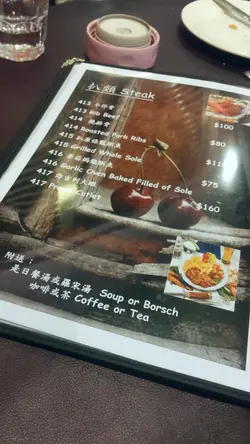 扒類 Steak
413 牛仔骨
413 Rib Beef
$100
414 燒排骨
414 Roasted Pork Ribs
$80
415 Grilled Whole Sole
416 Garlic Oven Baked Filled of Sole
$75
417 炸吉列大蝦
$160
附送：
是日餐湯或羅宋湯 Soup or Borsch
咖啡或茶 Coffee or Tea